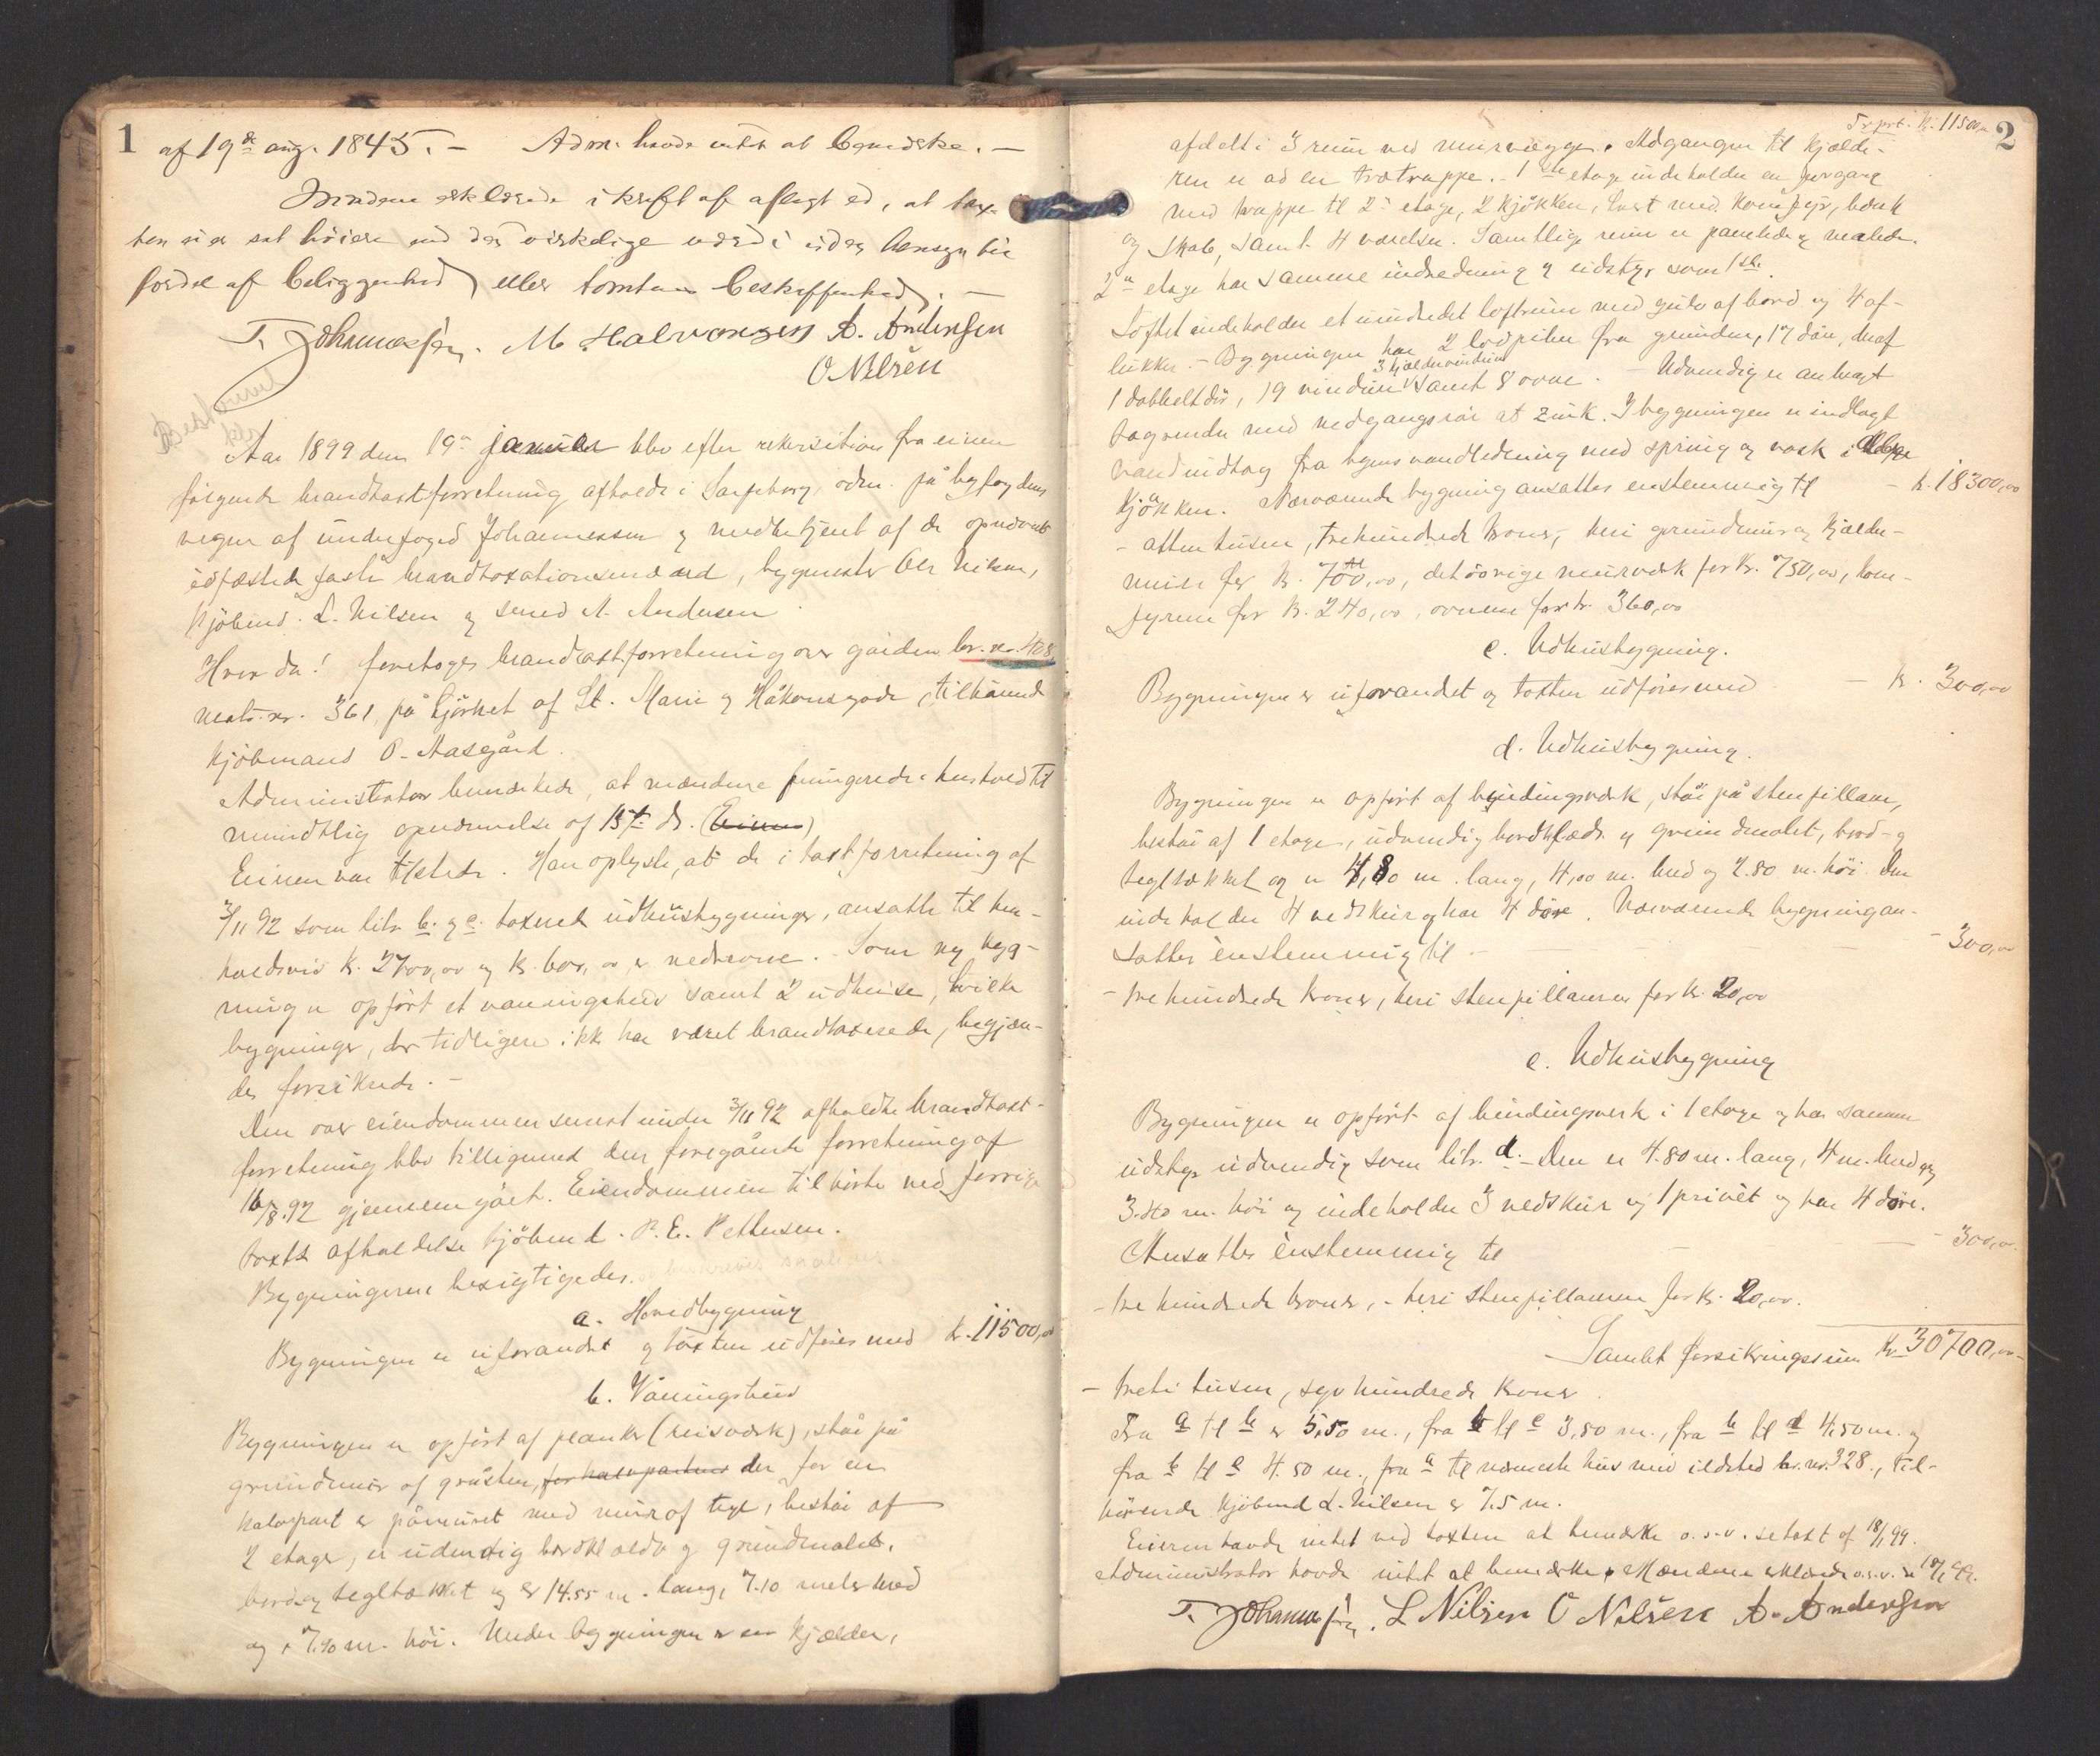 1
af 19de aug. 1845. – Adm. havde intet at bemærke. –
Mændene erklærede i kraft af aflagt ed, at tax-
ten ei er sat høiere end den virkelige værdi uden hensyn til
fordel af beliggenhed eller tomtens beskaffenhed. –
T. Johannessen. M Halvorsen A. Andersen
O Nilsen
Aar 1899 den 19de januar blev efter rekvisition fra eieren
følgende brandtaxtforretning afholdt i Sarpsborg, adm. på byfogdens
vegne af underfoged Johannessen og medbetjent af de opnævnte
edfæstede faste brandtaxationsmænd, bygmester Ole Nilsen,
kjöbmd. L. Nilsen og smed A. Andersen
Hvor da! foretoges brandtaxtforretning over gården br. nr. 408,
matr. nr. 361, på hjörnet af St. Marie og Håkonsgade, tilhörende
kjöbmand O. Aasgård.
Administrator bemærkede, at mændene fungerede i henhold til
mundtlig opnævnelse af 15de ds. (Eieren)
Eieren var tilstede. Han oplyste, at de i taxtforretning af
3/11 92 som litr. b. og c. taxerede udhusbygninger, ansatte til hen-
holdsvis kr. 2700,00 og kr. 600,00 er nedrevne. – Som ny byg-
ning er opført et våningshus samt 2 udhuse, hvilke
bygninger, der tidligere ikke har været brandtaxerede, begjæres-
des forsikrede. –
Den over eiendommen senest under 3/11 92 afholdte brandtaxt-
forretning blev tilligemed den foregående forretning af
16/8.92 gjennemgået. Eiendommen tilhørte ved forrige
taxts afholdelse kjöbmd. P. E. Pettersen.
Bygningerne besigtigedes.
a. Hovedbygning
Bygningen er uforandret og taxten udføres med kr. 11500,00
b. Våningshus
Bygningen er opfört af planker (reisværk), står på
grundmur af gråsten, for halvparten der for en
halvpart er påmuret med mur af tegl, består af
2 etager, er udvendig bordklædt og grundmalet,
bord og tegltækket og er 14.55 m. lang, 7.10 meter bred
og 7.40 m. höi. Under bygningen er en kjælder,
Trprt. kr. 11500,00
2
afdelt i 3 rum ved murvægge. Adgangen til kjælde-
ren er ad en trætrappe. – 1ste etage indeholder en forgang
med trappe til 2den etage, 2 kjökken, hvert med komfyr, bænk
og skab, samt 4 værelser. Samtlige rum er panelede og malede.
2den etage har samme indredning og udstyr som 1ste.
Loftet indeholder et uindredet loftrum med gulv af bord og 4 af-
lukker. – Bygningen har 2 brandpiber fra grunden, 17 döre, deraf
3 kjældervinduer
1 dobbeltdör, 19 vinduer samt 8 ovne. – Udvendig er anbragt
tagrender med nedgangsrör af zink. I bygningen er indlagt
vandindtag fra byens vandledning med spring og vask i begge
kjökken. Nærværende bygning ansattes enstemmig til – kr. 18300,00
– atten tusen, trehundrede kroner, heri grundmur og kjælder-
mur for kr. 700,00, det övrige murværk for kr. 750,00, kom-
fyrene for kr. 240,00, ovnene for kr. 360,00
c. Udhusbygning.
Bygningen er uforandret og taxten udföres med – kr. 300,00
d. Udhusbygning.
Bygningen er opfört af bindingsværk, står på stenpillarer,
består af 1 etage, udvendig bordklædt og grundmalet, bord- og
tegltækket og er 4,80 m. lang, 4,00 m. bred og 2.80 m. höi. Den
indeholder 4 vedskur og har 4 döre. Nærværende bygning an-
sattes enstemmig til – – 300,00
– trehundrede kroner, heri stenpillarerne for kr. 20,00
e. Udhusbygning
Bygningen er opfört af bindingsverk i 1 etage og har samme
udstyr udvendig som litr. d. – Den er 4.80 m. lang, 4 m. bred og
3.40 m. höi og indeholder 3 vedskur og 1 privèt og har 4 döre.
Ansattes enstemmig til – – 300,00.
– trehundrede kroner, – heri stenpillarerne for kr. 20,00.
Samlet forsikringssum kr. 30700,00 –
– treti tusen, syvhundrede kroner.
Fra a til b er 5,50 m., fra b til c 3,50 m., fra b til d 4,50 m. og
fra b til e 4.50 m., fra a til nærmeste hus med ildsted br. nr. 328., til-
hörende kjöbmd L. Nilsen er 7.5 m.
Eieren havde intet ved taxten at bemærke o.s.v. se taxt af 18/1 99.
Administrator havde intet at bemærke. Mændene erklærede o.s.v. se 18/1 99.
T. Johannessen. L Nilsen O Nilsen A. Andersen